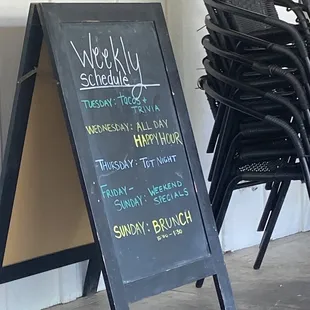 Weekly
Schedule
Tuesday: Tacos +
Trivia
Wednesday: All Day
Happy Hour
Thursday: Tot Night
Friday -
Sunday: Weekend
Specials
Sunday: Brunch